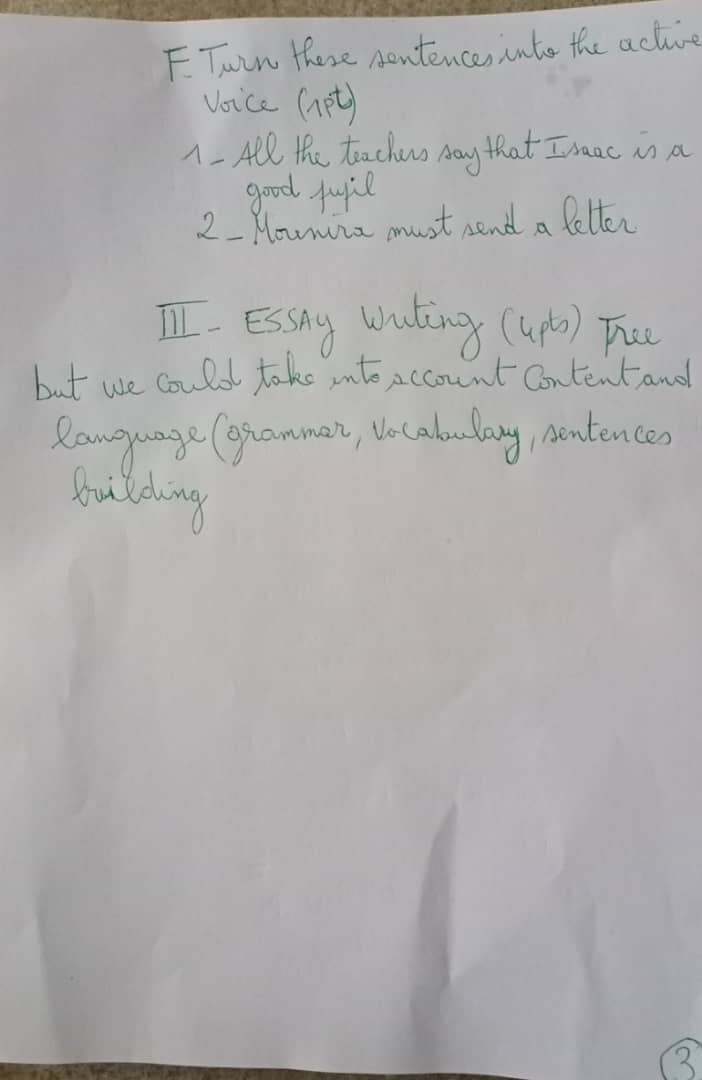 F. Turn these sentences into the active
Voice (1pt)
1- All the teachers say that Isaac is a
good pupil
2- Mounira must send a letter
III- ESSAY Writing (4pts) Free
but we could take into account Content and
language (grammar, Vocabulary, sentences
building
3